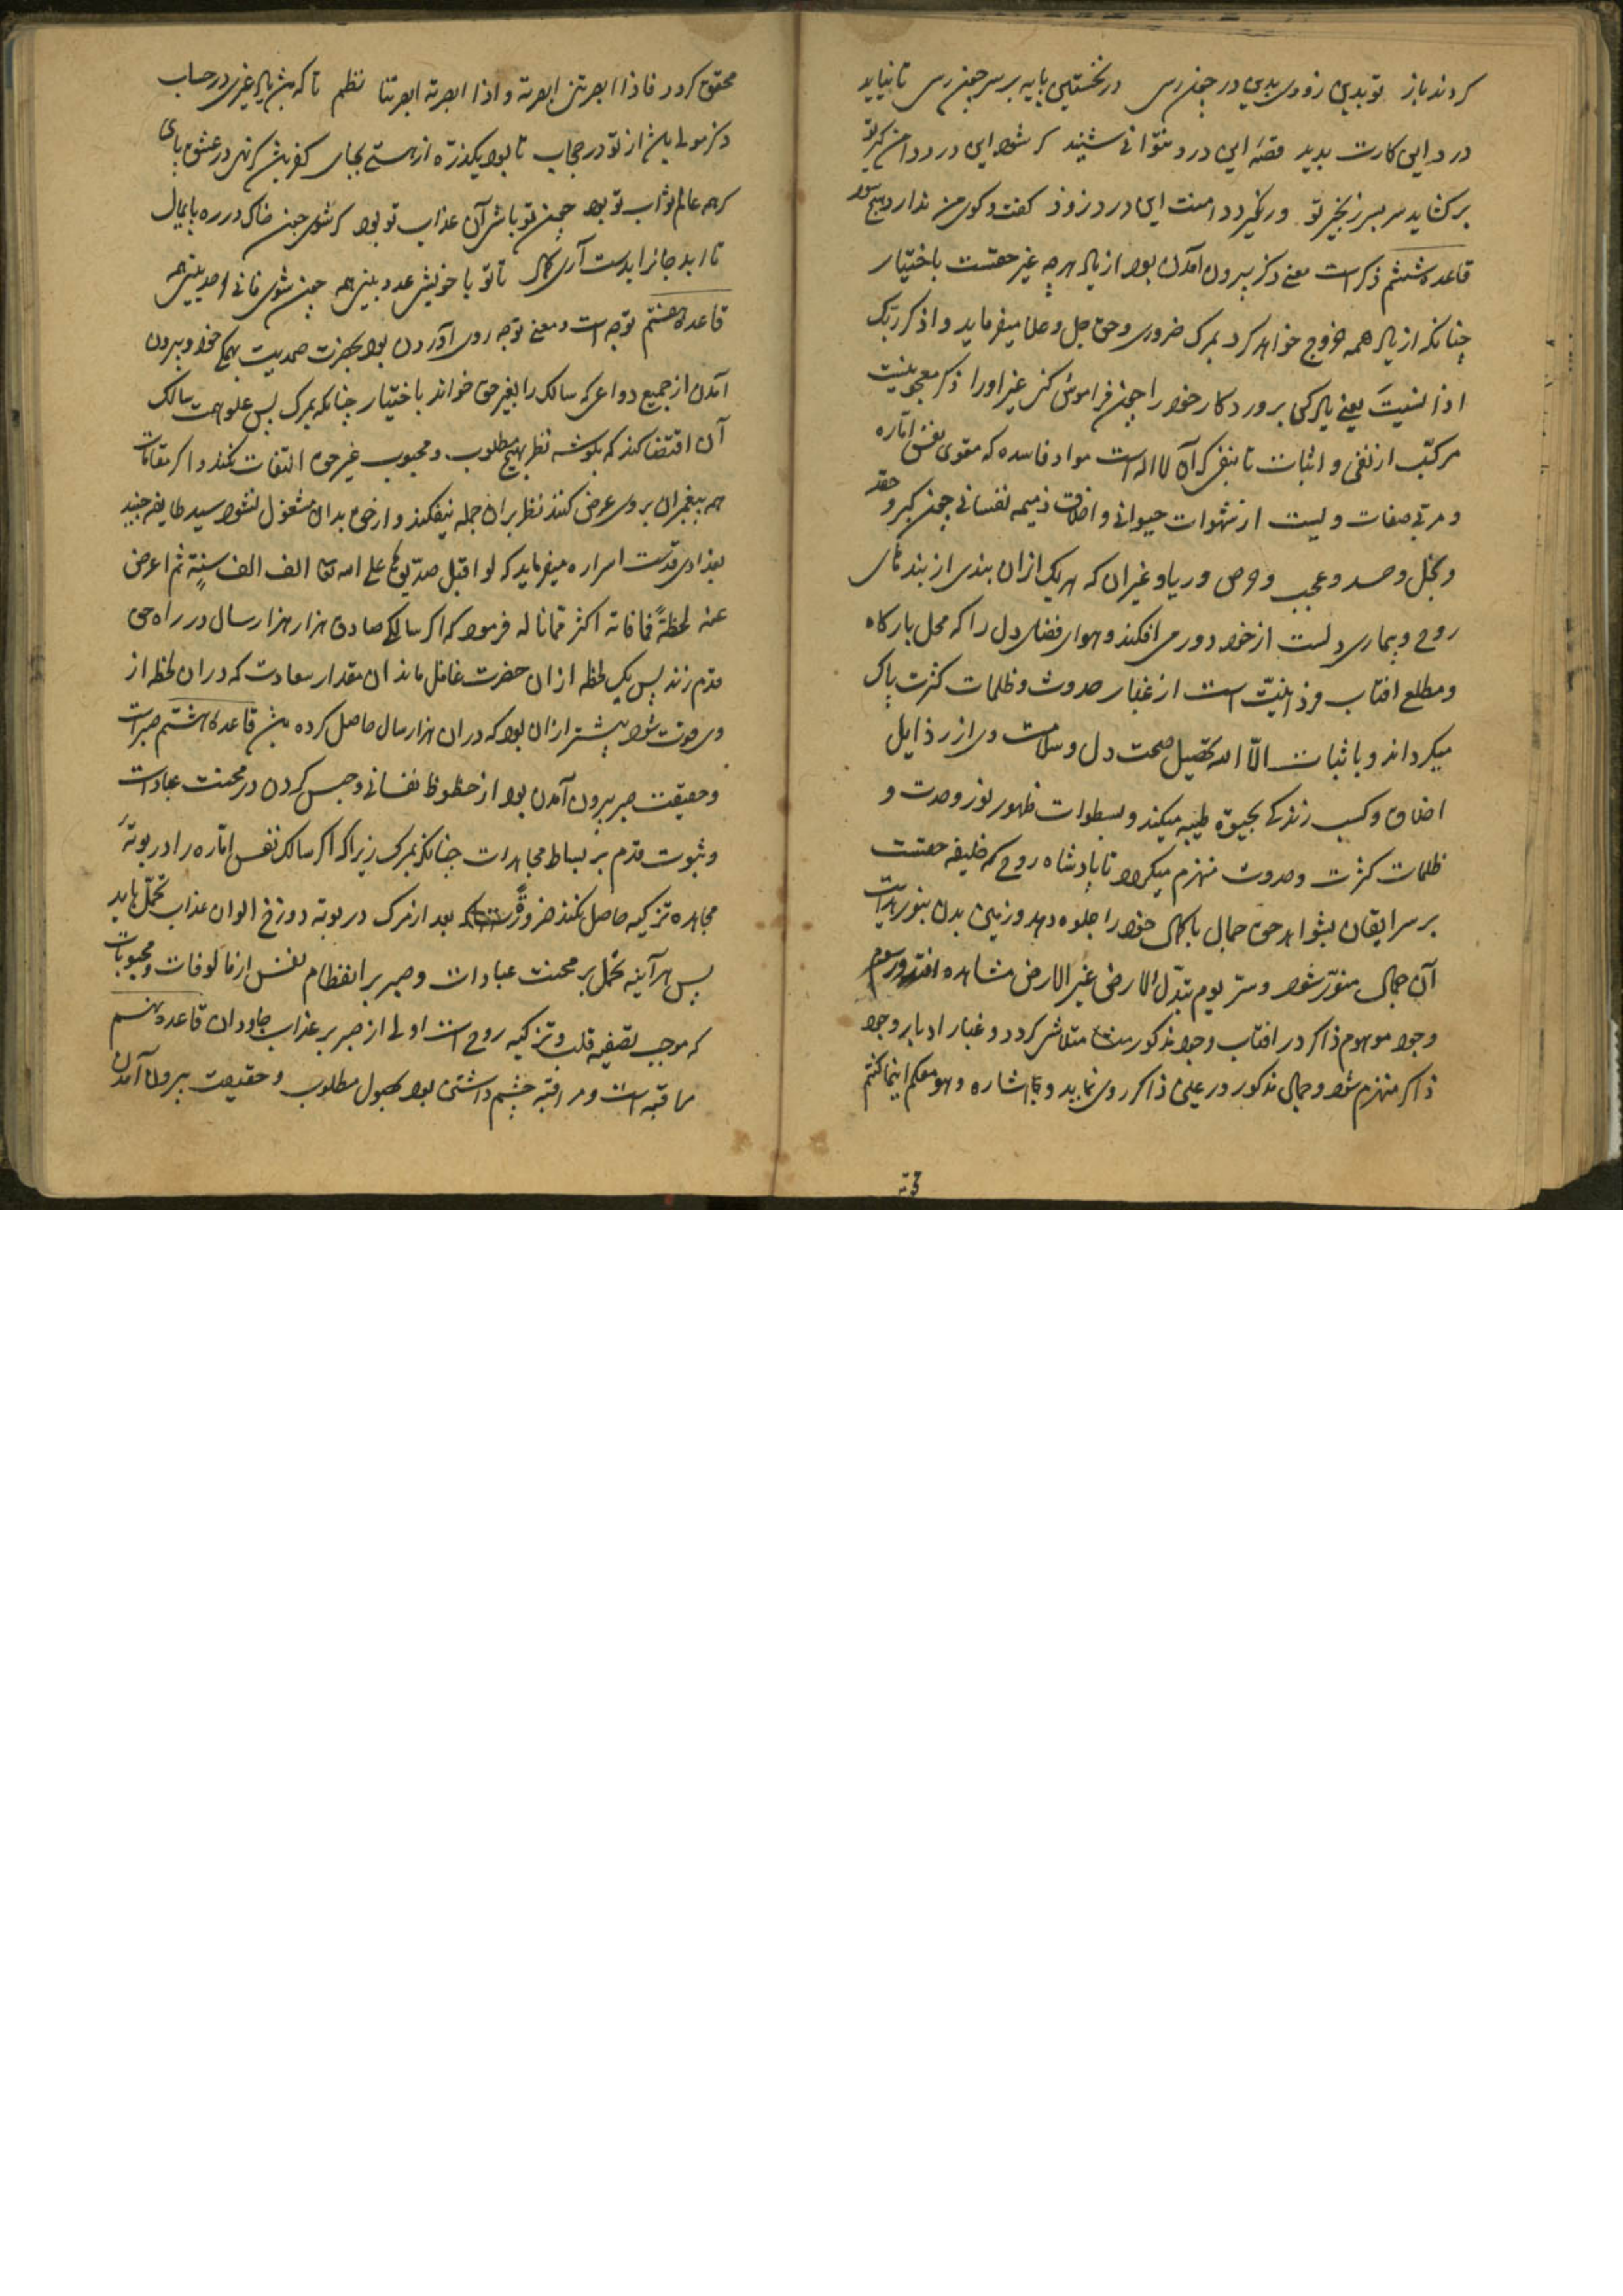 کردند باز تو بدین زودی بدین در چون رسی در نخستین پایه بر سر چون رسی تا نیاید
درد این کارت پدید قصهٔ این درد نتوانی شنید کر شود این درد دامن کیر تو
برکشاید سر بسر زنجیر تو ور نکیرد دامنت این درد زود کفت و کوی من ندارد هیچ سود
قاعدهٔ ششم ذکر است معنی ذکر بیرون آمدن بود از یاد هرچه غیر حقست باختیار
چنانکه از یاد همه خروج خواهد کرد بمرک ضروری و حق جل و علا میفرماید واذکر ربک
اذا نسیت یعنی یاد کن پروردکار خود را چون فراموش کنی غیر اورا ذکر معجونیست
مرکب از نفی و اثبات تا بنفی که آن لا اله است مواد فاسده که مقوی نفس اماره
و مربی صفات ویست از شهوات حیوانی و اخلاق ذمیمه نفسانی چون کبر و حقد
و بخل و حسد و عجب و حرص و ریا و غیر آن که هر یک از ان بندی از بندهای
روح و بیماری دلست از خود دور می افکند و هوای فضای دل را که محل بارکاه
و مطلع افتاب فردانیت است از غبار حدوث و ظلمات کثرت پاک
میکرداند و باثبات الا الله تحصیل صحت دل و سلامت وی از رذایل
اخلاق و کسب زندکی بحیوة طیبه میکند و بسطوات ظهور نور وحدت و
ظلمات کثرت و حدوث منهزم میکردد تا پادشاه روح که خلیفه حقست
بر سر ایقان بشواهد حق جمال با کمال خود را جلوه دهد و زمین بدن بنور
آن جمال منور شود و سر یوم تبدل الارض غیر الارض مشاهده افتد و رسوم
وجود موهوم ذاکر در افتاب وجود مذکور متلاشی کردد و غبار ادبار وجود
ذاکر منهزم شود و جمال مذکور در عین ذاکر روی نماید و اشاره وهو معکم اینما کنتم
محقق کردد فاذا ابصرتنی ابصرته واذا ابصرته ابصرتنا نظم تا که پیش یاد غیری در حساب
ذکر مولی پیش از تو در حجاب تا بود یکذره از هستی بجای کفر پیش کر نهی در عشق پای
کر همه عالم ثواب تو بود چون تو باشی آن عذاب تو بود کر شوی چون خاک در ره پایمال
تا ابد جانرا بدست آری کمال تا تو با خویشی عدد بینی همه چون شوی فانی احد بینی همه
قاعدهٔ هفتم توجه است و معنی توجه روی آوردن بود بحضرت صمدیت بهمکی خود و بیرون
آمدن از جمیع دواعی که سالک را بغیر حق خواند باختیار چنانکه بمرک پس علو همت سالک
آن اقتضا کند که بکوشه نظر بهیچ مطلوب و محبوب غیر حق التفات نکند و اکر مقامات
همه پیغمبران بروی عرض کنند نظر بران جمله نیفکند و از حق بدان مشغول نشود سید طایفه جنید
بغدادی قدست اسراره میفرماید که لو اقبل صدیق علی الله تعا الف الف سنة ثم اعرض
عنه لحظةً فما فاته اکثر مما ناله فرمود که اکر سالکی صادق هزار هزار سال در راه حق
قدم زند پس یک لحظه از ان حضرت غافل ماند آن مقدار سعادت که دران لحظه از
وی فوت شود بیشتر از ان بود که دران هزار سال حاصل کرده قاعدهٔ هشتم صبر است
و حقیقت صبر بیرون آمدن بود از حظوظ نفسانی و حبس کردن در محنت عبادات
و ثبوت قدم بر بساط مجاهدات چنانکه بمرک زیراکه اکر سالک نفس اماره را در بوتهٔ
مجاهده تزکیه حاصل نکند ضرورةً بعد از مرک در بوته دوزخ الوان عذاب تحمل باید
پس هر آینه تحمل بر محنت عبادات و صبر بر انفطام نفس از مالوفات و محبوبات
که موجب تصفیه قلب و تزکیه روح است اولی از صبر بر عذاب جاودان قاعده نهم
مراقبه است و مراقبه چشم داشتن بود بحصول مطلوب و حقیقت بیرون آمدن